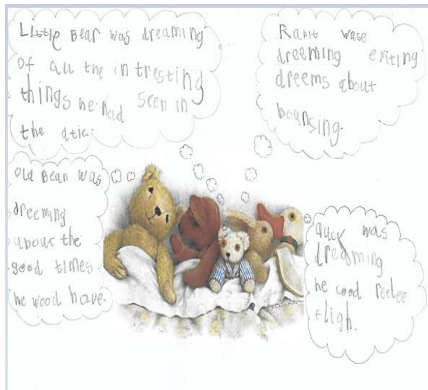 Little Bear was dreaming
of all the intresting
things he had seen in
the atic.
Rabit wase
dreeming exiting
dreems about
bounksing.
old Bean was
dreeming
about the
good times
he wood have.
duck was
dreaming
he cood reelee
fligh.